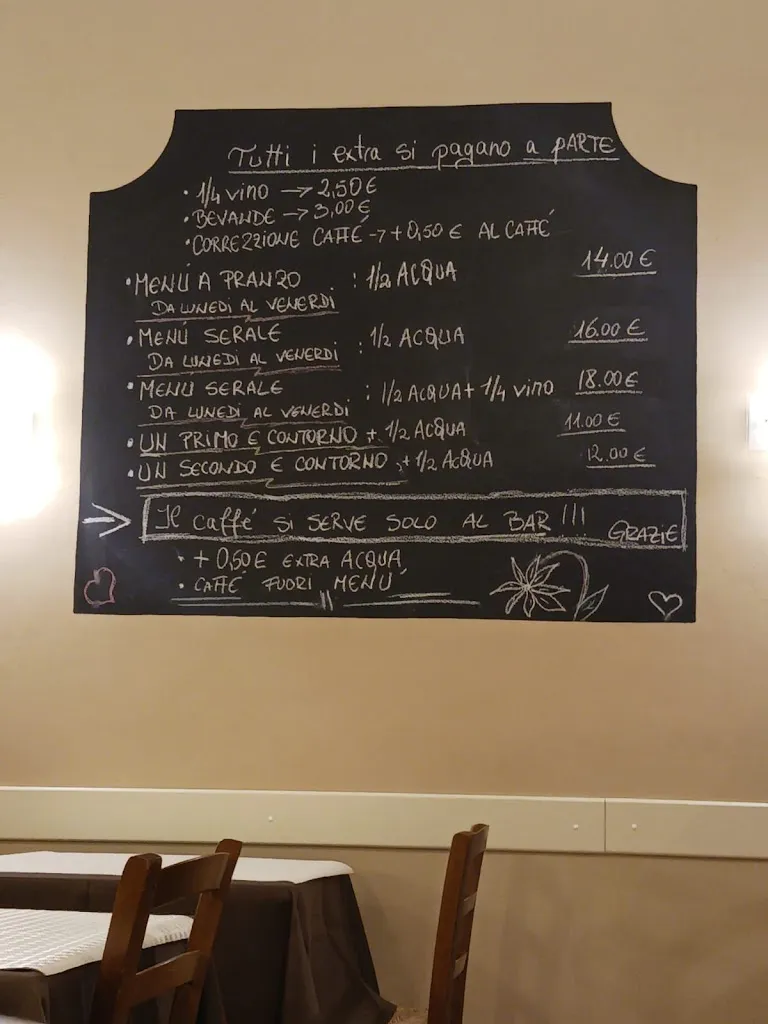 Tutti i extra si pagano a PARTE
• 1/4 VINO → 2,50 €
• BEVANDE → 3,00 €
• CORREZZIONE CAFFÉ → + 0,50 € AL CAFFÉ
• MENÚ A PRANZO : 1/2 ACQUA 14.00 €
DA LUNEDI AL VENERDI
• MENÚ SERALE : 1/2 ACQUA 16.00 €
DA LUNEDI AL VENERDI
• MENU SERALE : 1/2 ACQUA + 1/4 VINO 18.00 €
DA LUNEDI AL VENERDI
• UN PRIMO E CONTORNO + 1/2 ACQUA 11.00 €
• UN SECONDO E CONTORNO + 1/2 ACQUA 12.00 €
→ Il caffé SI SERVE SOLO AL BAR !!! GRAZIE
• + 0,50 € EXTRA ACQUA
• CAFFÉ FUORI MENÚ